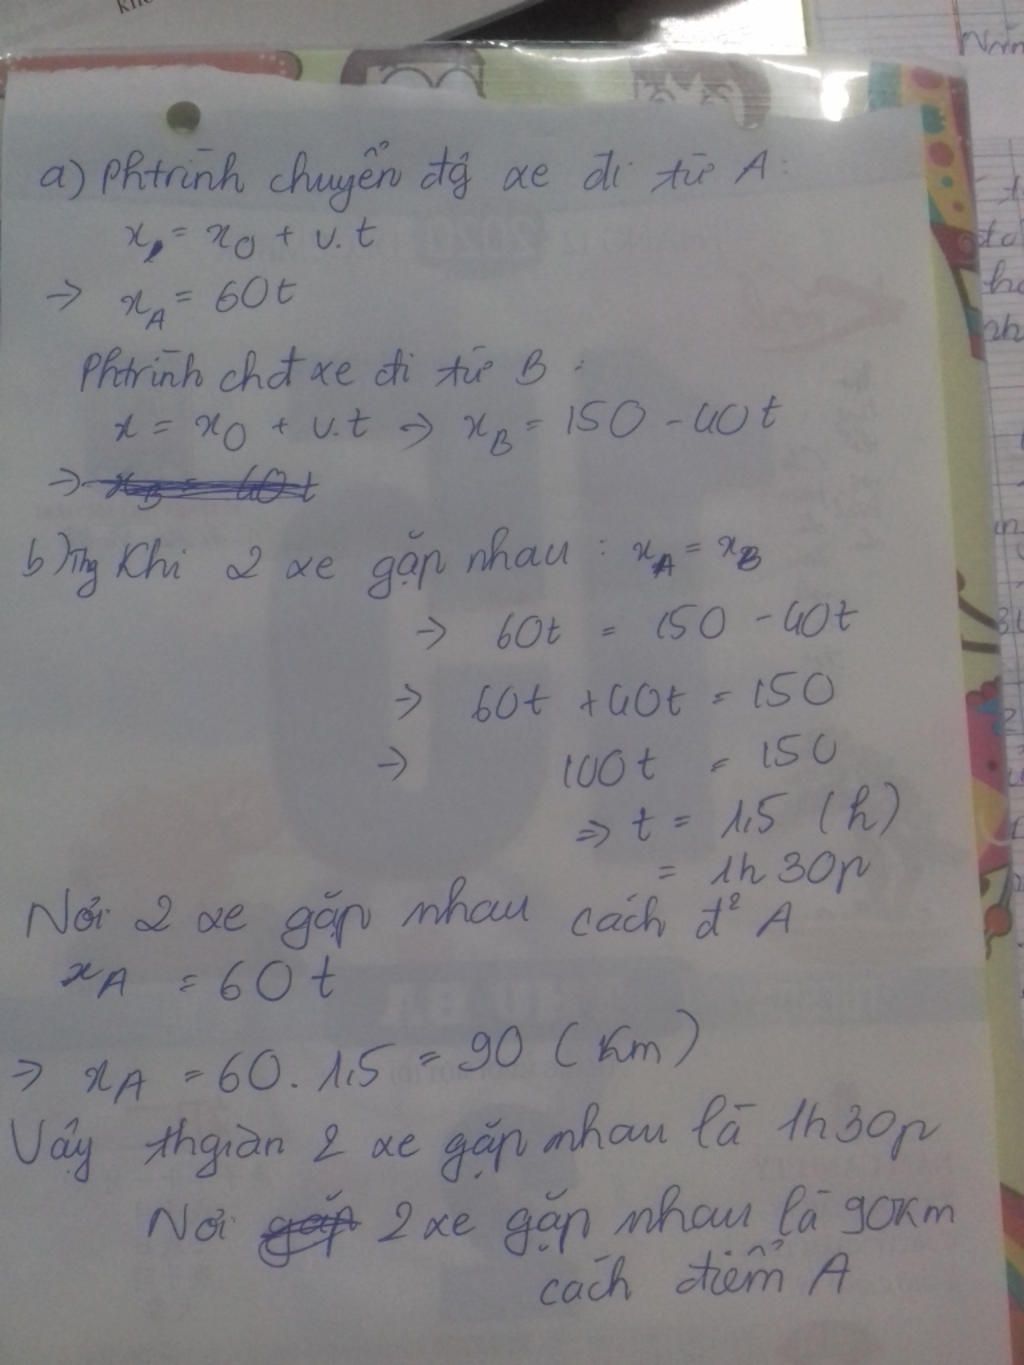 a) Phtrình chuyển đg xe đi từ A:
x = x0 + v.t
→ xA = 60t
Phtrình chđ xe đi từ B :
x = x0 + v.t → xB = 150 - 40t
→ xB = 40t
b) Khi 2 xe gặp nhau : xA = xB
→ 60t = 150 - 40t
→ 60t + 40t = 150
→ 100t = 150
⇒ t = 1,5 (h)
= 1h30p
Nơi 2 xe gặp nhau cách đ² A
xA = 60t
→ xA = 60. 1,5 = 90 (Km)
Vậy thgian 2 xe gặp nhau là 1h30p
Nơi gặp 2 xe gặp nhau là 90Km
cách điểm A